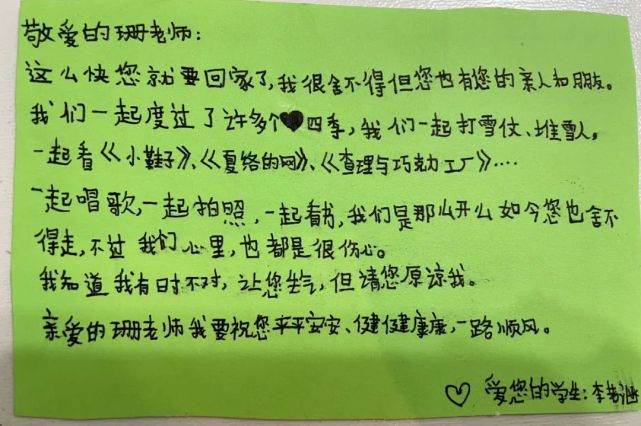 敬爱的珊老师：
这么快您就要回家了，我很舍不得但您也有您的亲人和朋友。
我们一起度过了许多个四季，我们一起打雪仗、堆雪人。
一起看《小鞋子》、《夏络的网》、《查理与巧克力工厂》····
一起唱歌，一起拍照，一起看书，我们是那么开么如今您也舍不
得走，不过我们心里，也都是很伤心。
我知道我有时不对，让您生气，但请您原谅我。
亲爱的珊老师我要祝您平平安安、健健康康，一路顺风。
♡ 爱您的学生：李书涵